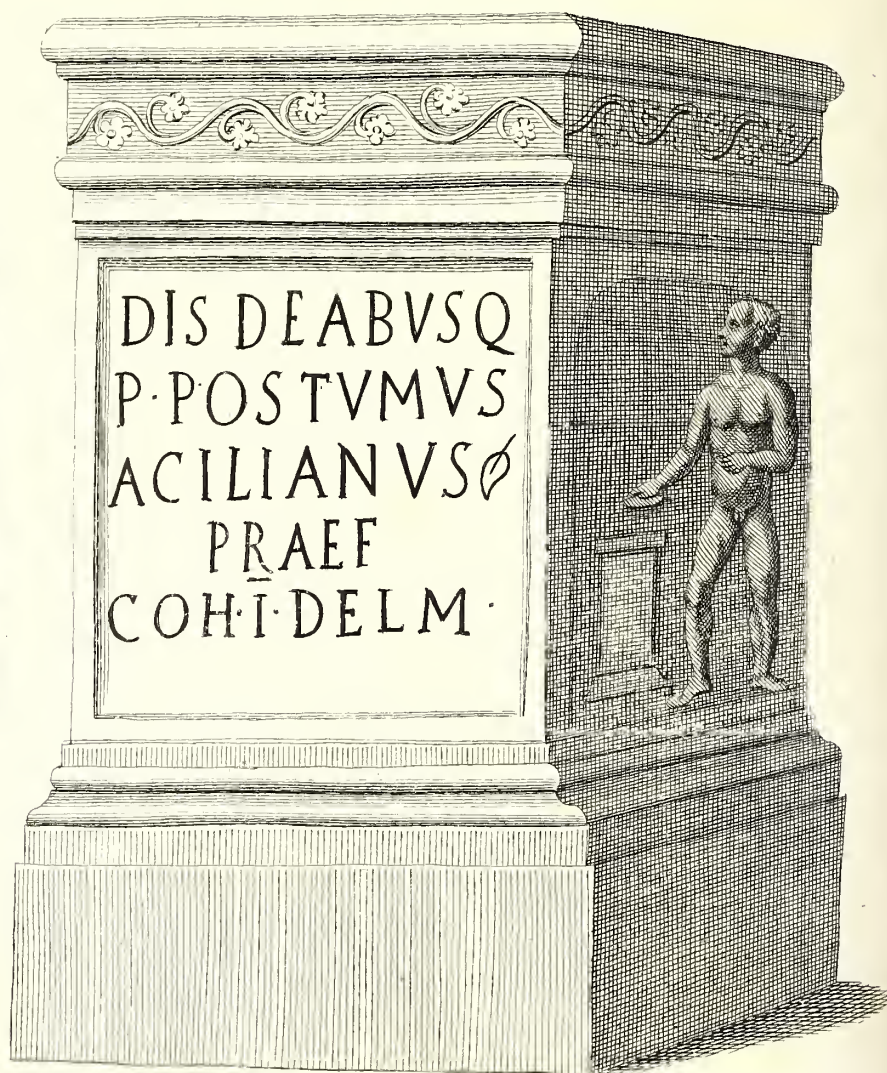 DIS DEABVSQ
P·POSTVMVS
ACILIANVS
PRAEF
COH·Ī·DELM·